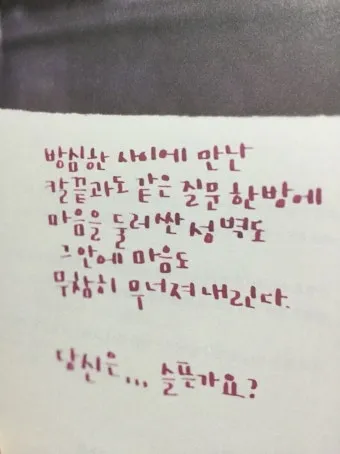 방심한 사이에 만난
칼끝과도 같은 질문 한방에
마음을 둘러싼 성벽도
그안에 마음도
무참히 무너져내린다.
당신은... 슬픈가요?